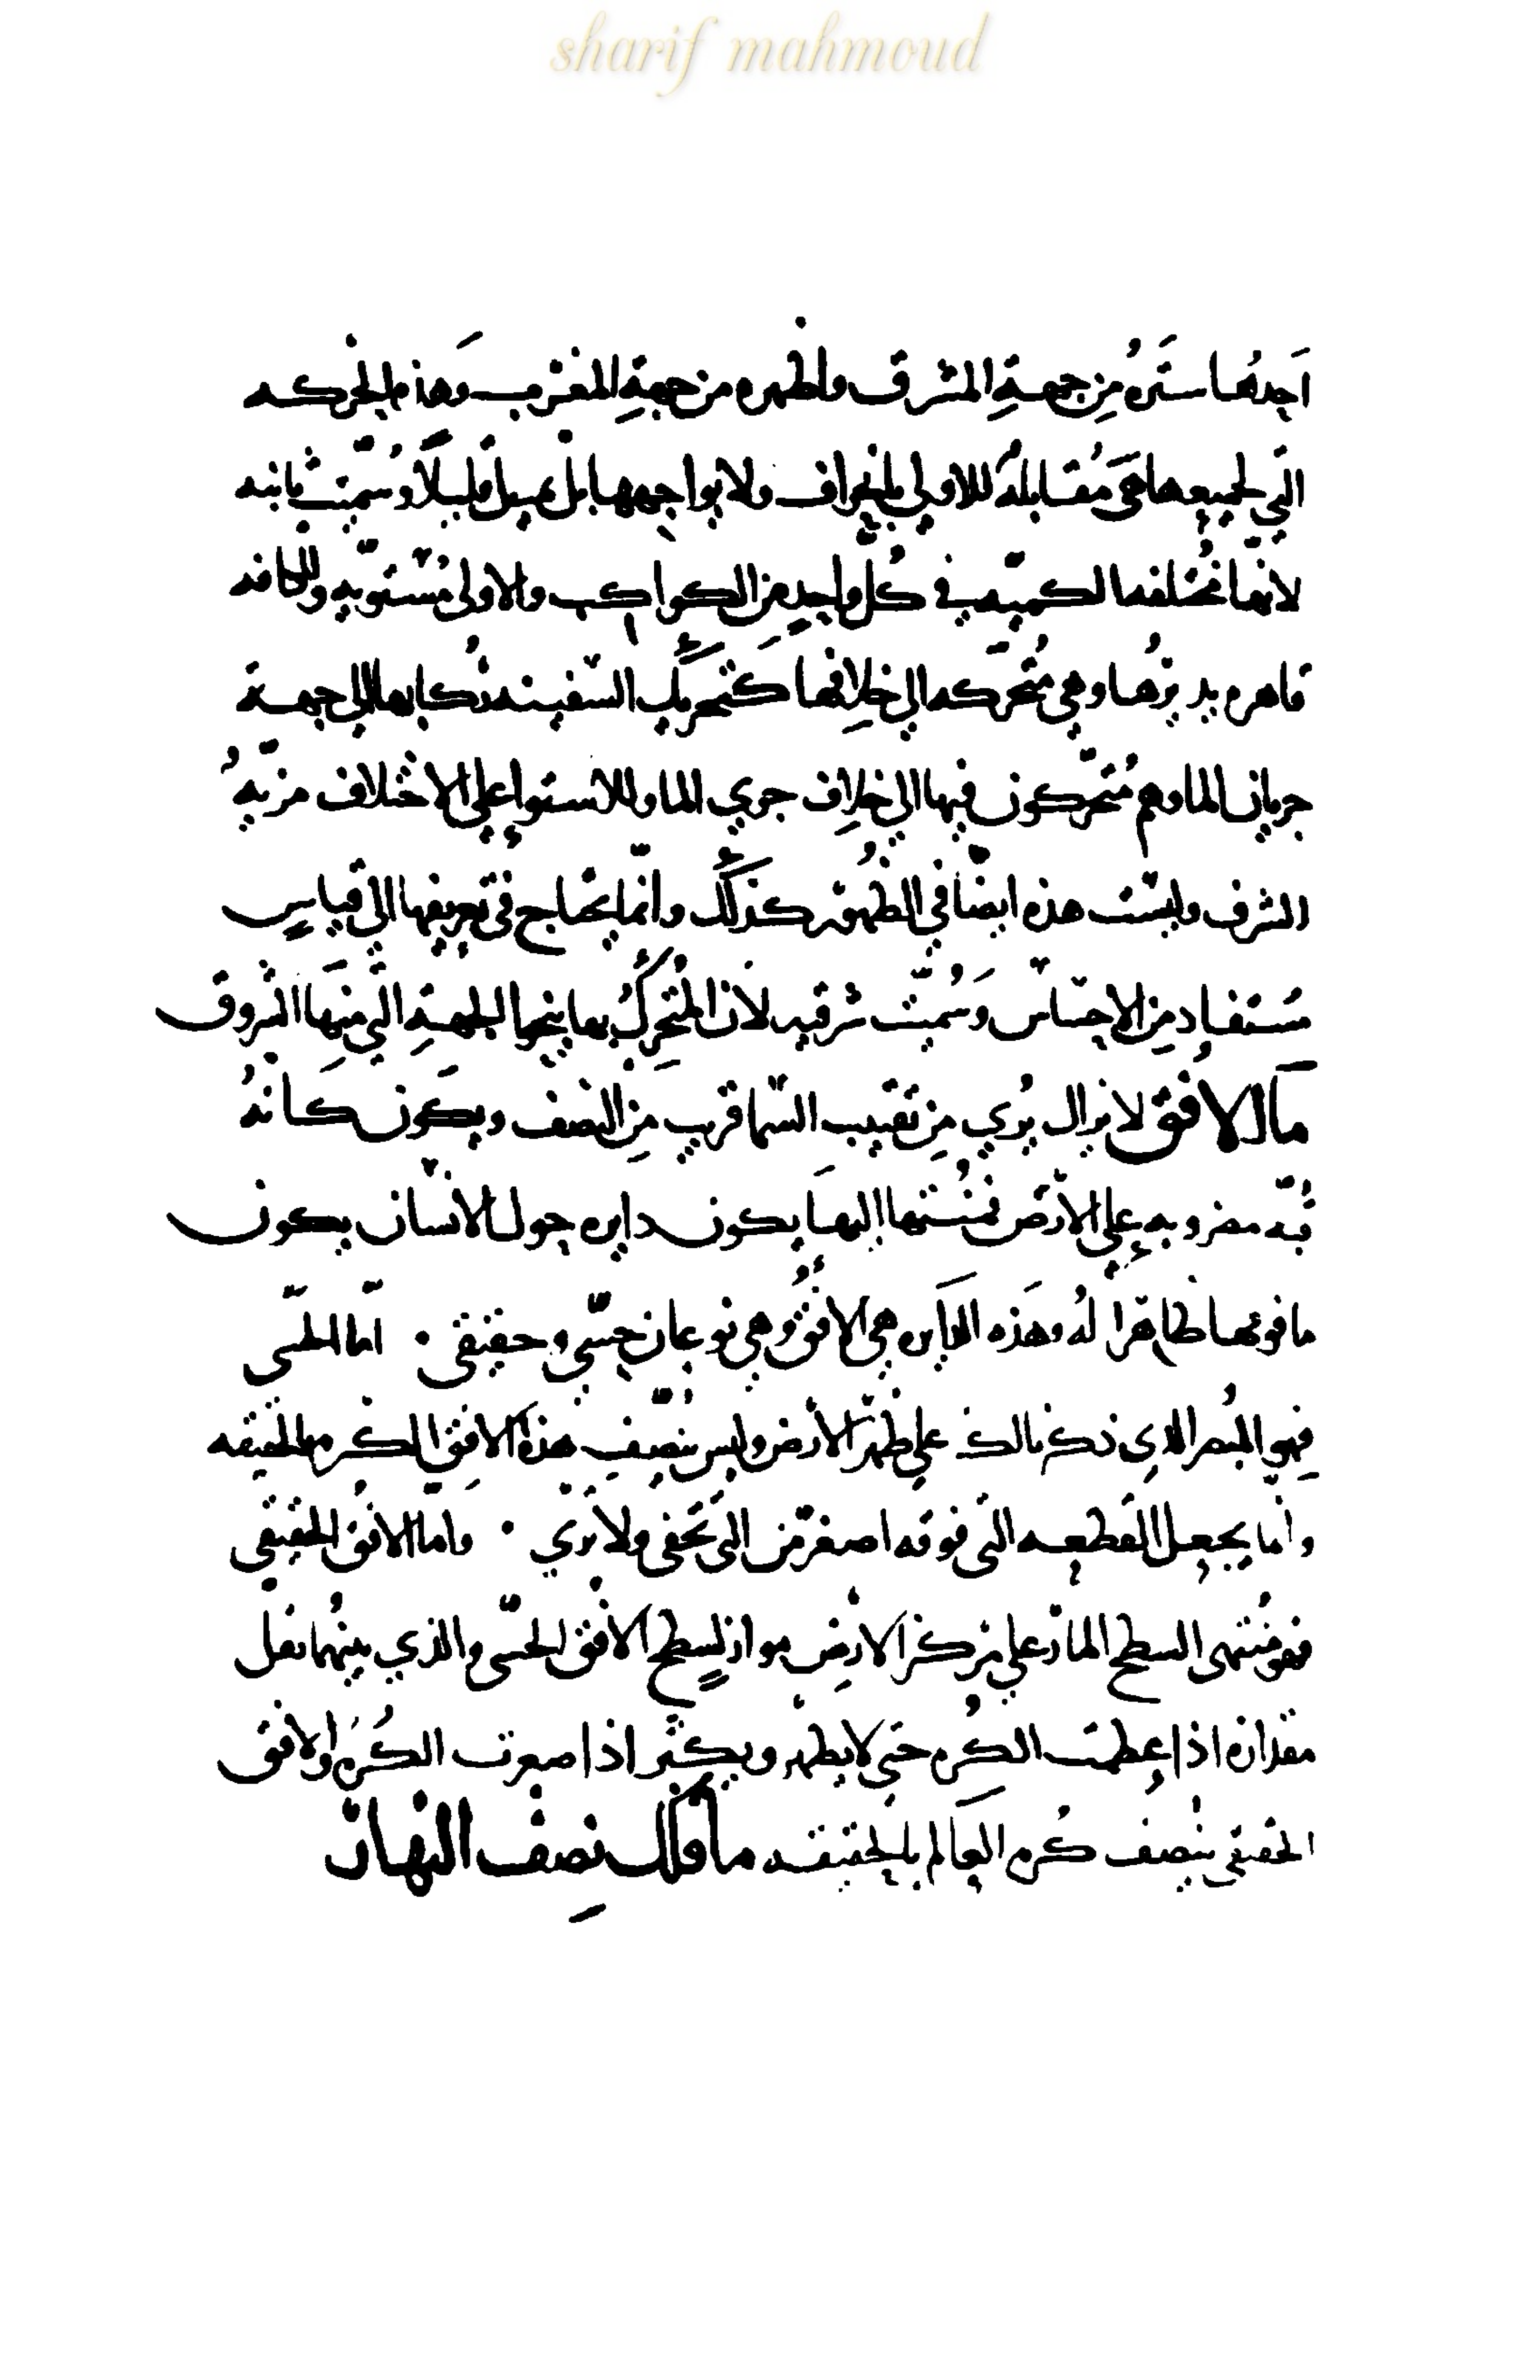 sharif mahmoud
احدها ستره من جهة المشرق واظهره من جهة المغرب وهذه الحركه
التي لجميعها هي مقابلة للاولي بانحراف ولا يواجهها بل يميل قليلا وسميت ثانيه
لانها مختلفه الكميه في كل واحد من الكواكب والاولى مستويه وللكافه
قاهره يديرها وهي متحركه الي خلافها كتحريك السفينه ركابها الي جهة
جريان الما وهم متحركون فيها الي خلاف جري الما وللاستوا علي الاختلاف مزيه
الشرف وليست هذه ايضا في الظهور كذلك وانما يحتاج في تعريفها الي قياس
مستفاد من الاحساس وسميت شرقيه لان المتحرك بها ينحو الجهة التي منها الشروق
ما الافق لا يزال يري من تقبيب السما قريب من النصف ويكون كانه
قبه مضروبه علي الارض فمنتهاها اليها يكون دايره حول الانسان يكون
ما فوقها ظاهرا له وهذه الدايره هي الافق وهي نوعان حسي وحقيقي . اما الحسي
فهو المبصر الذي ذكرنا لك علي ظهر الارض وليس ينصف هذه الافق الكره بالحقيقه
وانما يجعل القطعه التي فوقه اصغر من التي تخفي ولا تري . واما الافق الحقيقي
فهو منتهى السطح المار علي مركز الارض مواز لسطح الافق الحسي والذي بينهما يقل
مقداره اذا عظمت الكره حتي لا يظهر ويكثر اذا صغرت الكره والافق
الحقيقي ينصف كره العالم بالحقيقه ما فلك نصف النهار